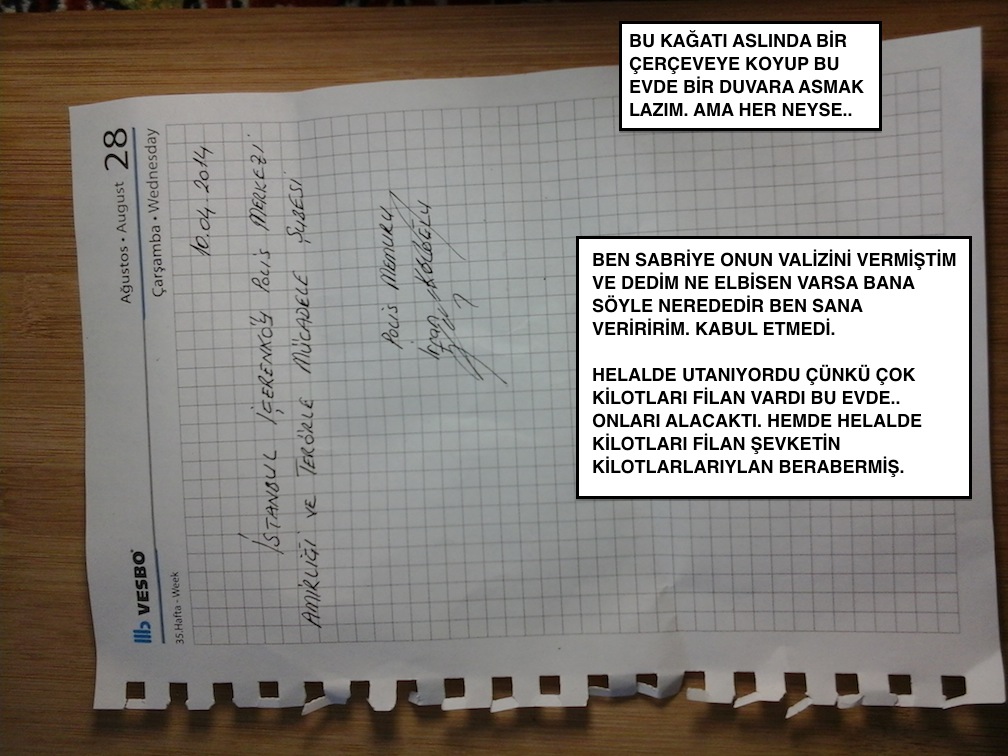 BU KAĞATI ASLINDA BİR
ÇERÇEVEYE KOYUP BU
EVDE BİR DUVARA ASMAK
LAZIM. AMA HER NEYSE..
BEN SABRİYE ONUN VALİZİNİ VERMİŞTİM
VE DEDİM NE ELBİSEN VARSA BANA
SÖYLE NEREDEDİR BEN SANA
VERİRİRİM. KABUL ETMEDİ.
HELALDE UTANIYORDU ÇÜNKÜ ÇOK
KİLOTLARI FİLAN VARDI BU EVDE..
ONLARI ALACAKTI. HEMDE HELALDE
KİLOTLARI FİLAN ŞEVKETİN
KİLOTLARLARIYLAN BERABERMİŞ.
VESBO
Ağustos • August 28
35.Hafta - Week
Çarşamba • Wednesday
10.04.2014
İSTANBUL İÇERENKÖY POLİS MERKEZİ
AMİRLİĞİ VE TERÖRLE MÜCADELE ŞUBESİ
POLİS MEMURU